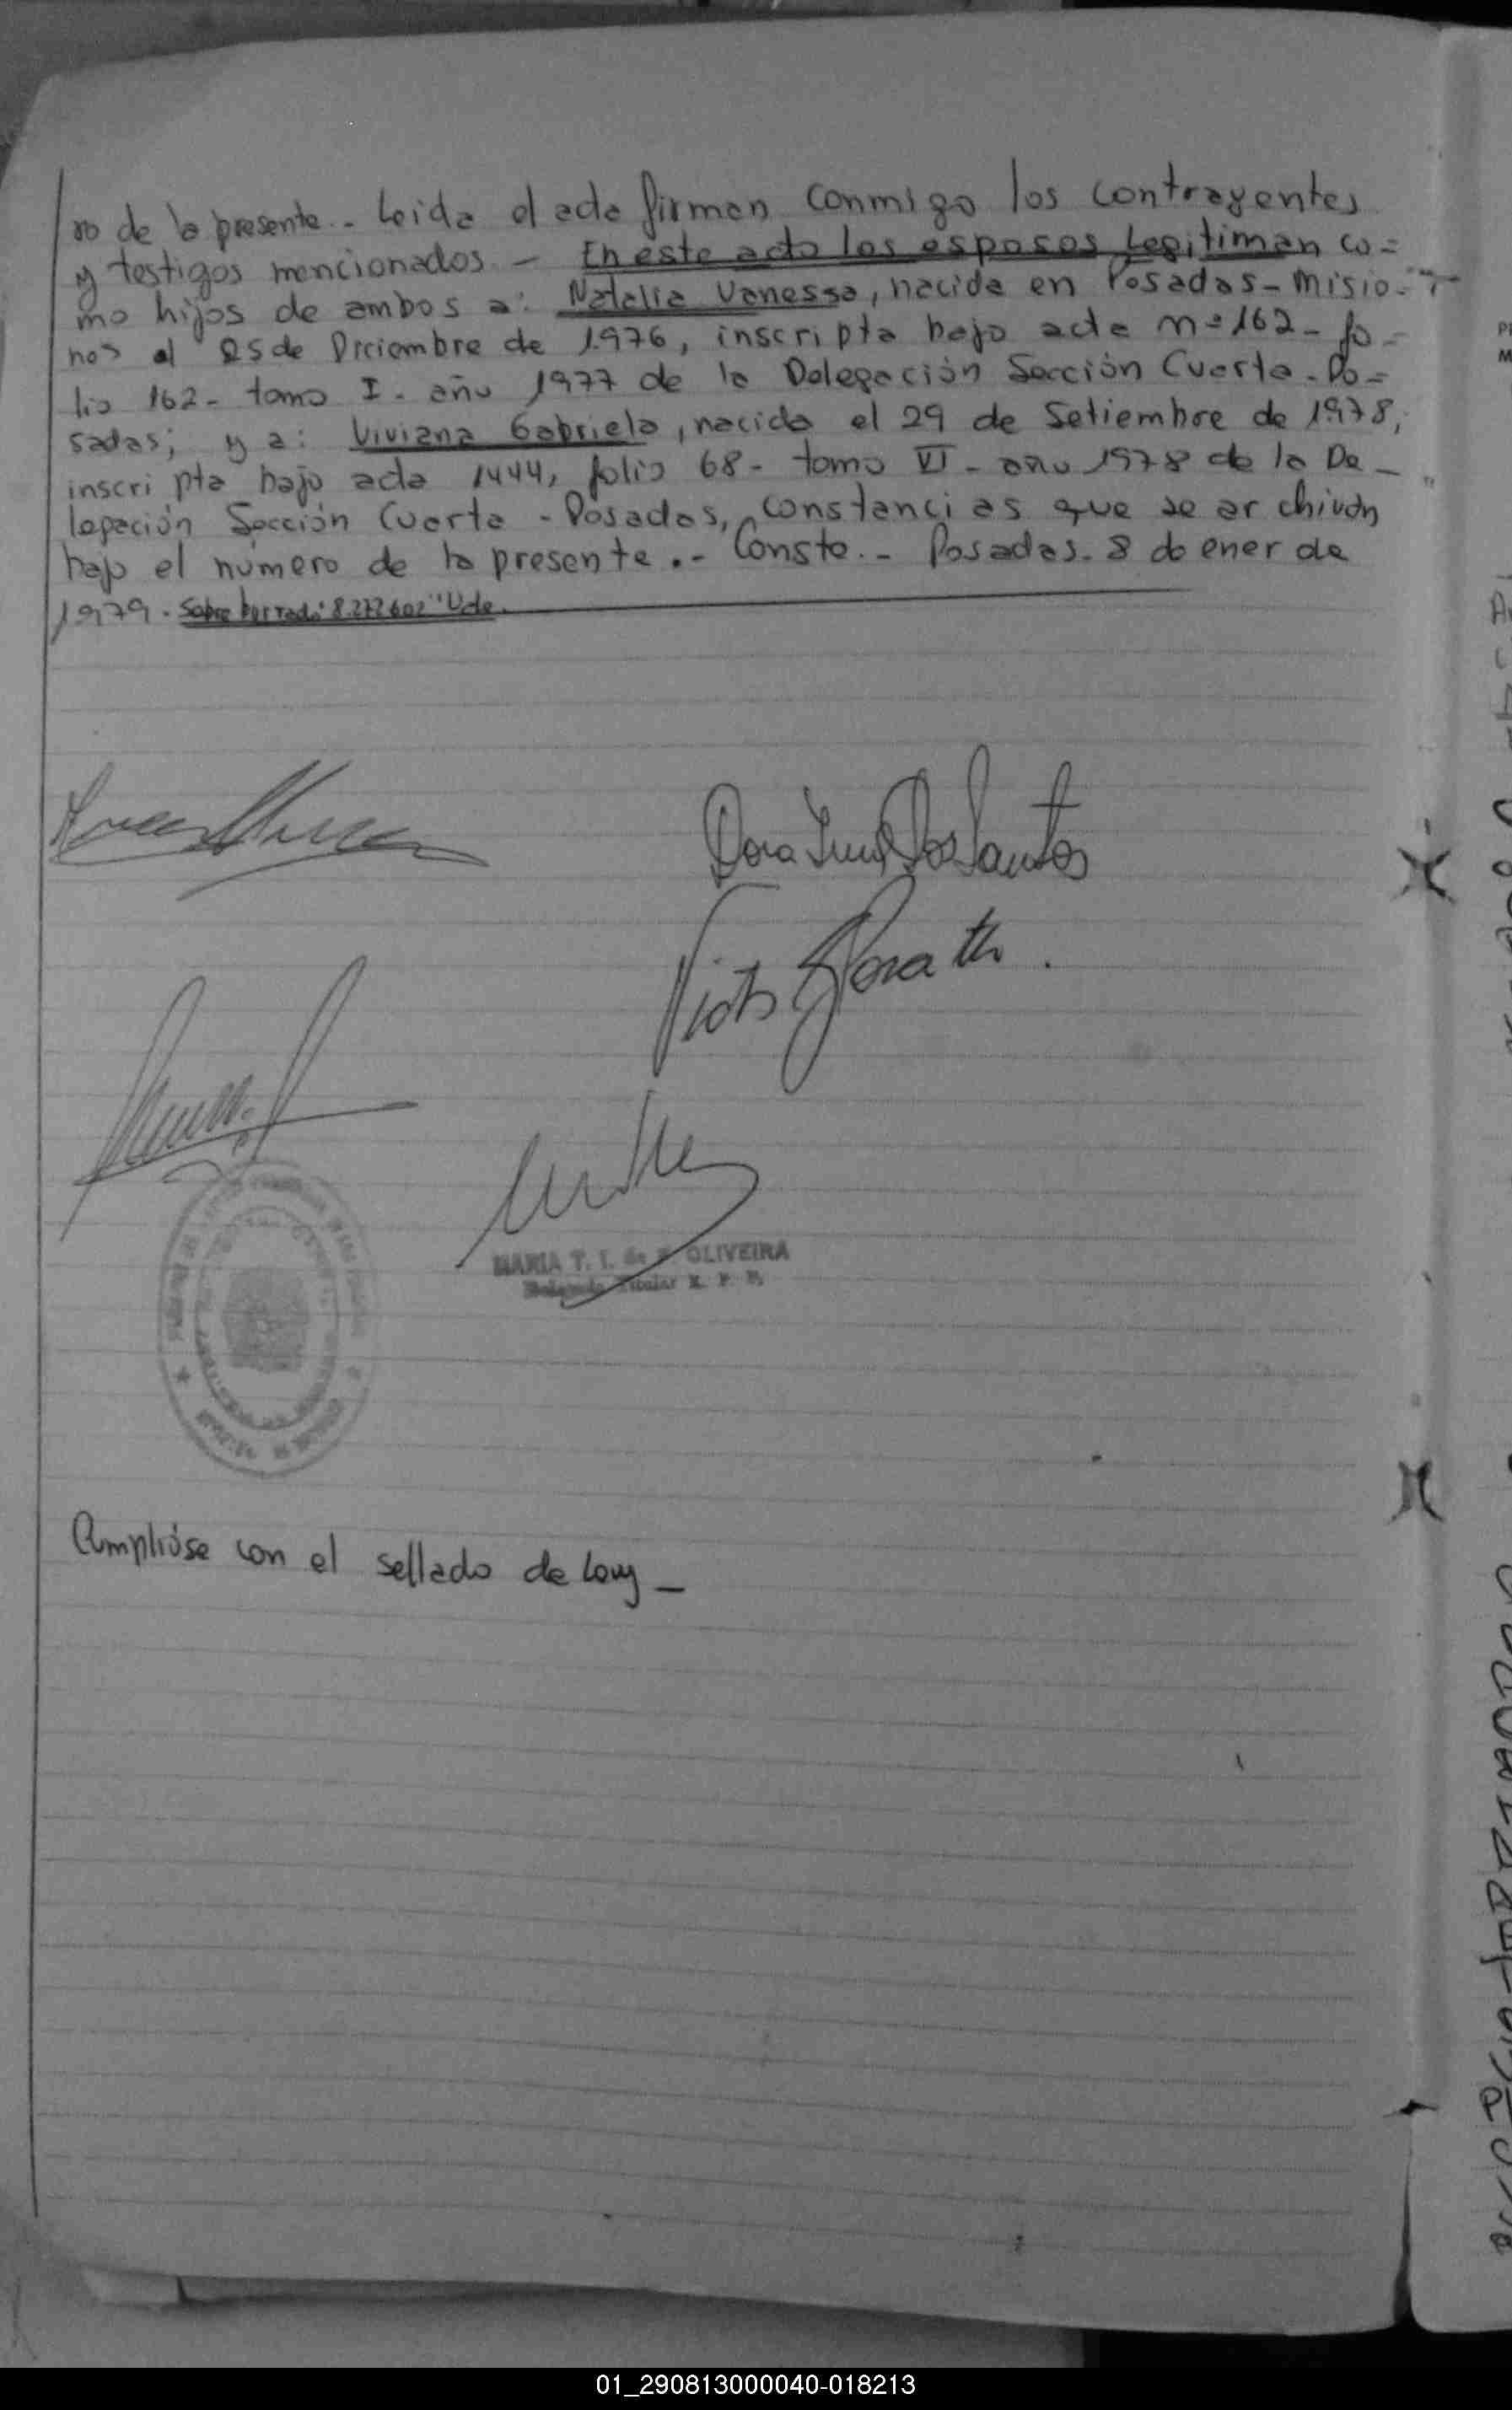 ro de la presente.- Leida el acta firman conmigo los contrayentes
y testigos mencionados - En este acto los esposos Legitiman co=
mo hijos de ambos a: Natalia Vanessa, nacida en Posadas-Misio-
nes el 25 de Diciembre de 1976, inscripta bajo acta nº162- fo-
lio 162- tomo I- año 1977 de la Delegación Sección Cuarta-Po=
sadas; y a: Viviana Gabriela, nacida el 29 de Setiembre de 1978,
inscripta bajo acta 1444, folio 68- tomo VI- año 1978 de la De-
legación Sección Cuarta -Posadas, constancias que se archivan
bajo el número de la presente.- Conste.- Posadas. 8 de ener de
1979. Sobre borrado "8.272.602" Vale.
Dora Dos Santos
MARIA T. I. de OLIVEIRA
Titular R. P. P.
Cumplióse con el sellado de Ley -
01_290813000040-018213